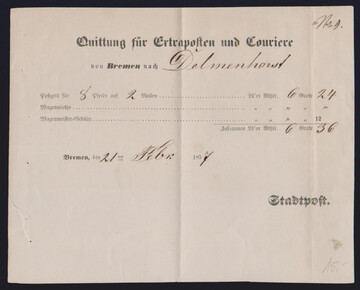 No 9.
Quittung für Extraposten und Couriere
von Bremen nach Delmenhorst
Postgeld für 8 Pferde auf 2 Meilen Ld'or Rthlr. 6 Grote 24
Wagenmiethe " " " "
Wagenmeister-Gebühr " " " 12
Zusammen Ld'or Rthlr. 6 Grote 36
Bremen, den 21 ten Febr. 1857
Stadtpost.
15.-